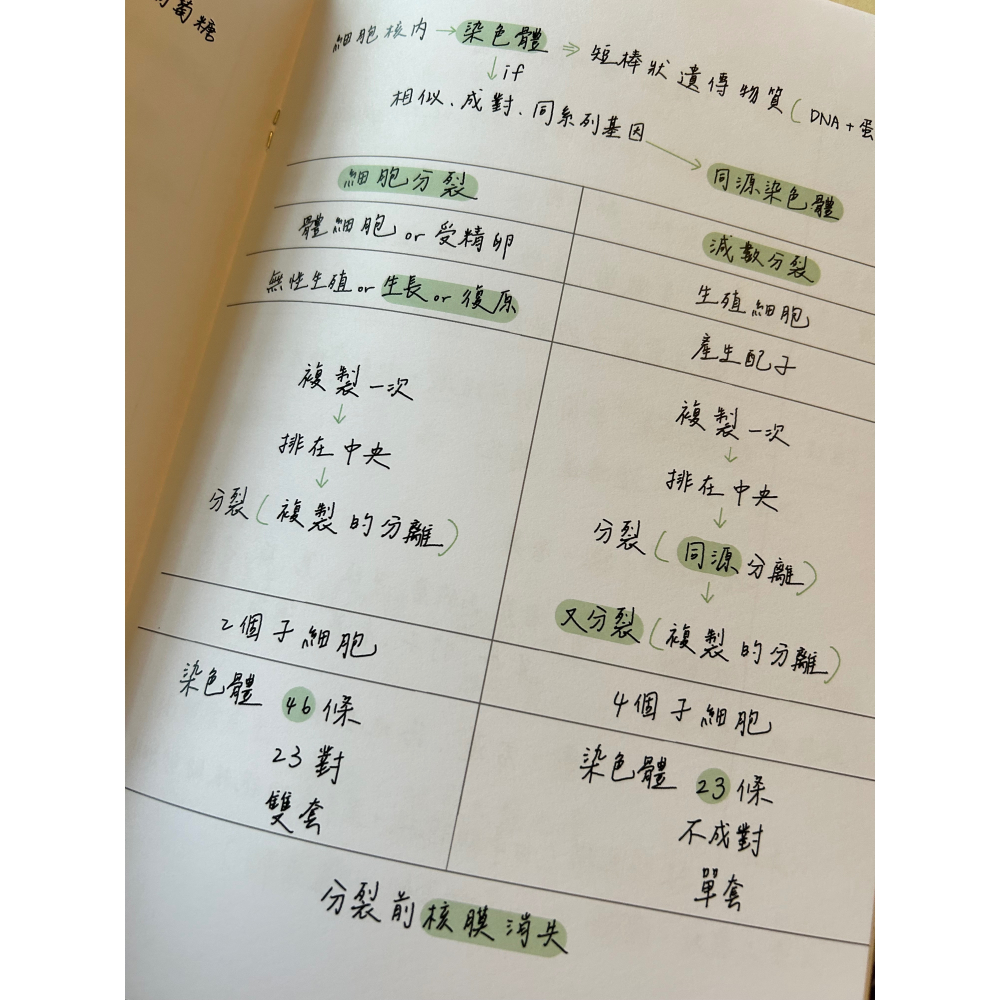 葡萄糖
細胞核內→染色體⇒短棒狀遺傳物質(DNA+蛋
↓if
相似、成對、同系列基因→同源染色體
細胞分裂
減數分裂
體細胞 or 受精卵
生殖細胞
無性生殖 or 生長 or 復原
產生配子
複製一次
↓
排在中央
↓
分裂(複製的分離)
複製一次
↓
排在中央
↓
分裂(同源分離)
↓
又分裂(複製的分離)
2個子細胞
4個子細胞
染色體 46 條
23對
雙套
染色體 23 條
不成對
單套
分裂前核膜消失